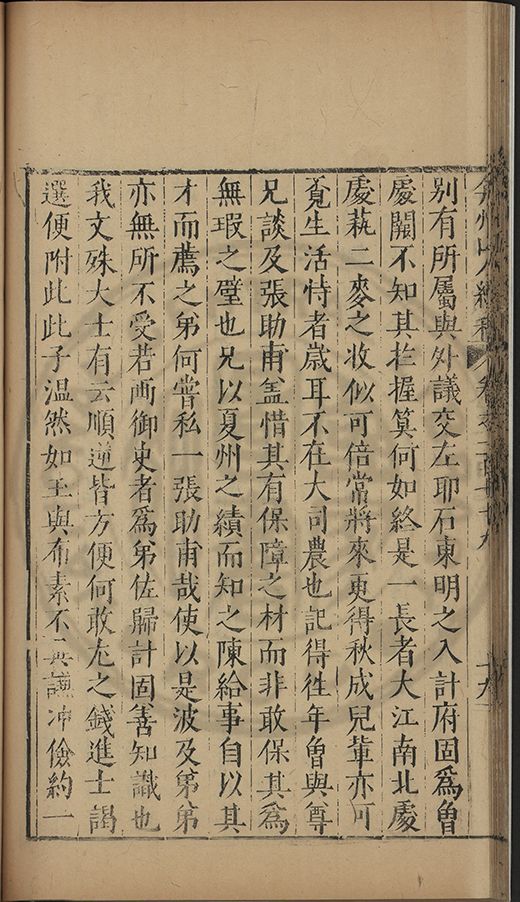 別有所屬與外議交左耶石東明之入計府固爲曾
處關不知其拄握筭何如終是一長者大江南北處
處蓺二麥之收似可倍常將來更得秋成兒輩亦可
覔生活恃者歲耳不在大司農也記得徃年曾與尊
兄談及張助甫盖惜其有保障之材而非敢保其爲
無瑕之璧也兄以夏州之績而知之陳給事自以其
才而薦之弟何嘗私一張助甫哉使以是波及弟弟
亦無所不受若西御史者爲弟佐歸計固善知識也
我文殊大士有云順逆皆方便何敢尤之錢進士謁
選便附此此子温然如玉與布素不異謙冲儉約一